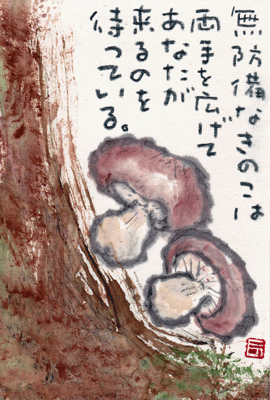 無防備なきのこは
両手を広げて
あなたが
来るのを
待っている。